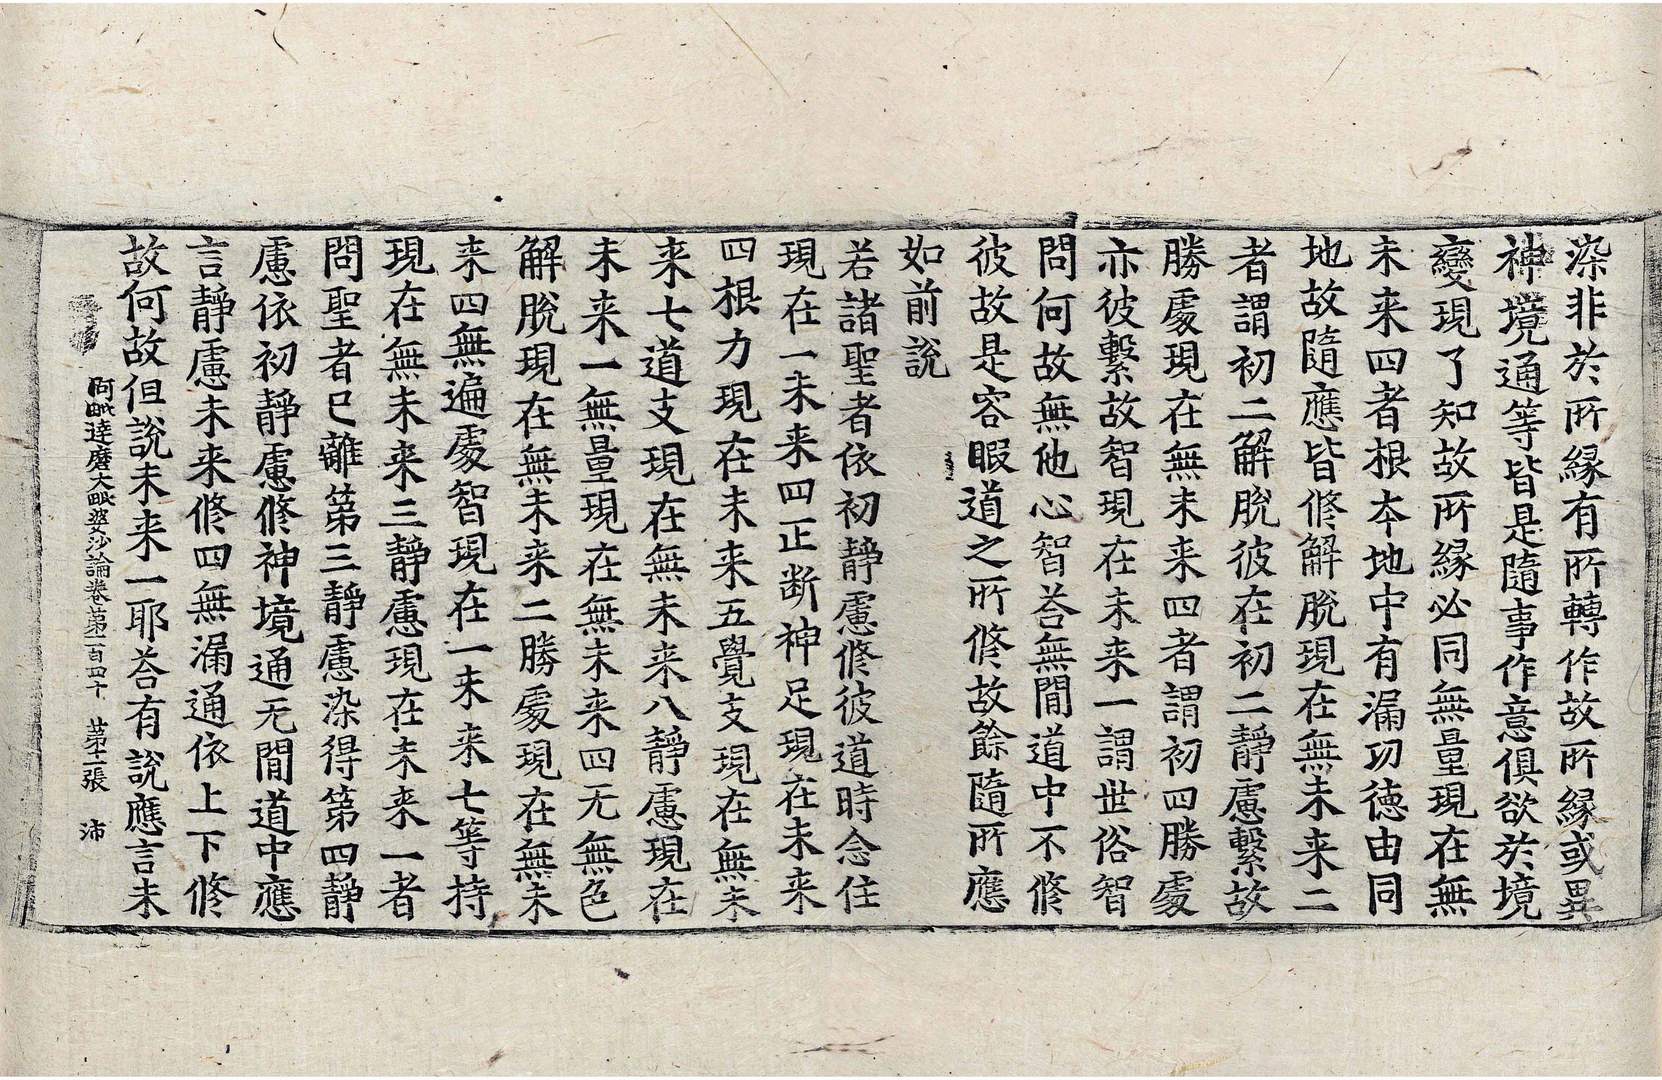 染非於所緣有所轉作故所緣或異
神境通等皆是隨事作意俱欲於境
變現了知故所緣必同無量現在無
未来四者根本地中有漏功德由同
地故隨應皆修解脫現在無未来二
者謂初二解脫彼在初二靜慮繫故
勝處現在無未来四者謂初四勝處
亦彼繫故智現在未来一謂世俗智
問何故無他心智荅無間道中不修
彼故是容暇道之所修故餘隨所應
如前說
若諸聖者依初靜慮修彼道時念住
現在一未来四正断神足現在未来
四根力現在未来五覺支現在無未
来七道支現在無未来八靜慮現在
未来一無量現在無未来四无無色
解脫現在無未来二勝處現在無未
来四無遍處智現在一未来七等持
現在無未来三靜慮現在未来一者
問聖者已離第三靜慮染得第四靜
慮依初靜慮修神境通无間道中應
言靜慮未来修四無漏通依上下修
故何故但說未来一耶荅有說應言未
阿毗達磨大毗婆沙論卷第一百四十 第十一張 沛